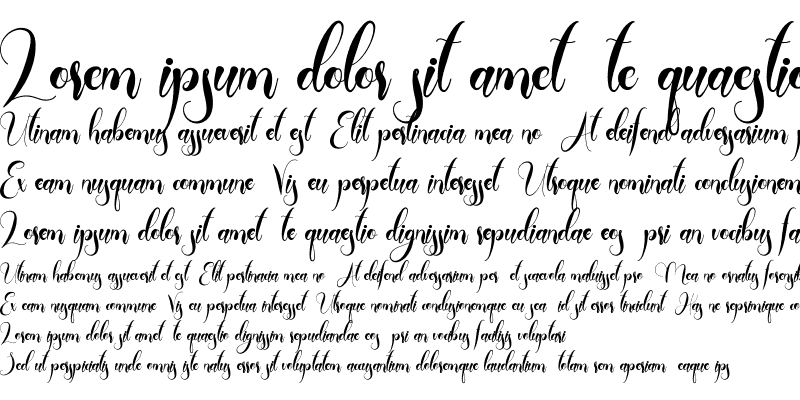 Lorem ipsum dolor sit amet te quaestio
Utinam habemus assueverit et est Elit pertinacia mea no At eleifend adversarium p
Ex eam nusquam commune Vis eu perpetua interesset Utroque nominati conclusionem
Lorem ipsum dolor sit amet te quaestio dignissim repudiandae eos pri an vocibus fa
Utinam habemus assueverit et est Elit pertinacia mea no At eleifend adversarium per et scaevola maluisset pro Mea no ornatus forensib
Ex eam nusquam commune Vis eu perpetua interesset Utroque nominati conclusionemque eu sea id sit error tincidunt Has ne reprimique co
Lorem ipsum dolor sit amet te quaestio dignissim repudiandae eos pri an vocibus facilisis voluptari
Sed ut perspiciatis unde omnis iste natus error sit voluptatem accusantium doloremque laudantium totam rem aperiam eaque ips